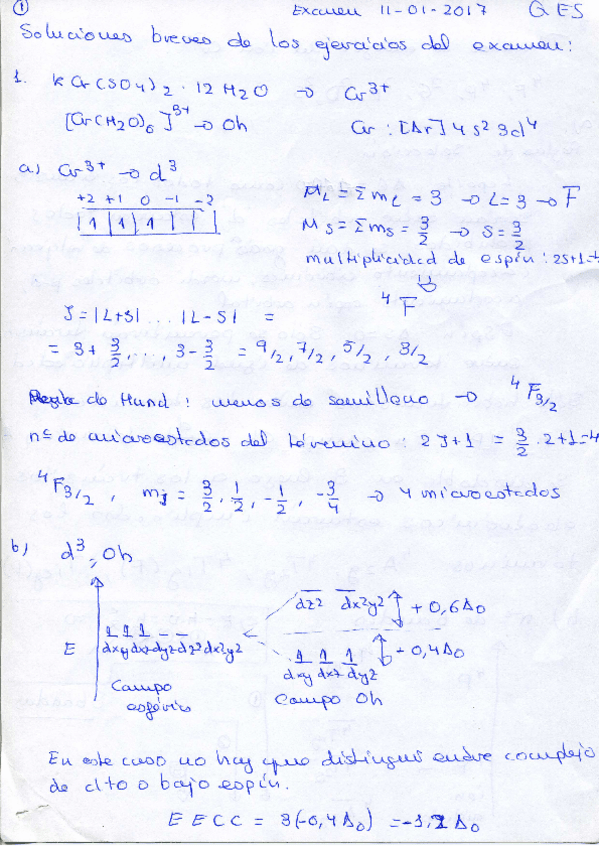 ① Examen 11-01-2017 QES
Soluciones breves de los ejercicios del examen:
1. KCr(SO4)2 · 12 H2O → Cr3+
[Cr(H2O)6]3+ → Oh Cr: [Ar] 4s2 3d4
a) Cr3+ → d3
+2 +1 0 -1 -2
|1|1|1| | |
ML = Σ mL = 3 → L = 3 → F
MS = Σ ms = 3/2 → S = 3/2
multiplicidad de espín: 2S+1=4
4F
J = |L+S| ... |L-S| =
= 3 + 3/2, ..., 3 - 3/2 = 9/2, 7/2, 5/2, 3/2
Regla de Hund: menos de semilleno → 4F3/2
nº de microestados del término: 2J+1 = 3/2 · 2+1 = 4
4F3/2, mj = 3/2, 1/2, -1/2, -3/4 → 4 microestados
b) d3, Oh
dz2 dx2y2 + 0,6 Δo
E 1 1 1 - -
dxy dxz dyz dz2 dx2y2
- 0,4 Δo
1 1 1
dxy dxz dyz
Campo esférico
Campo Oh
En este caso no hay que distinguir entre complejo
de alto o bajo espín.
E E C C = 3(-0,4 Δo) = -1,2 Δo